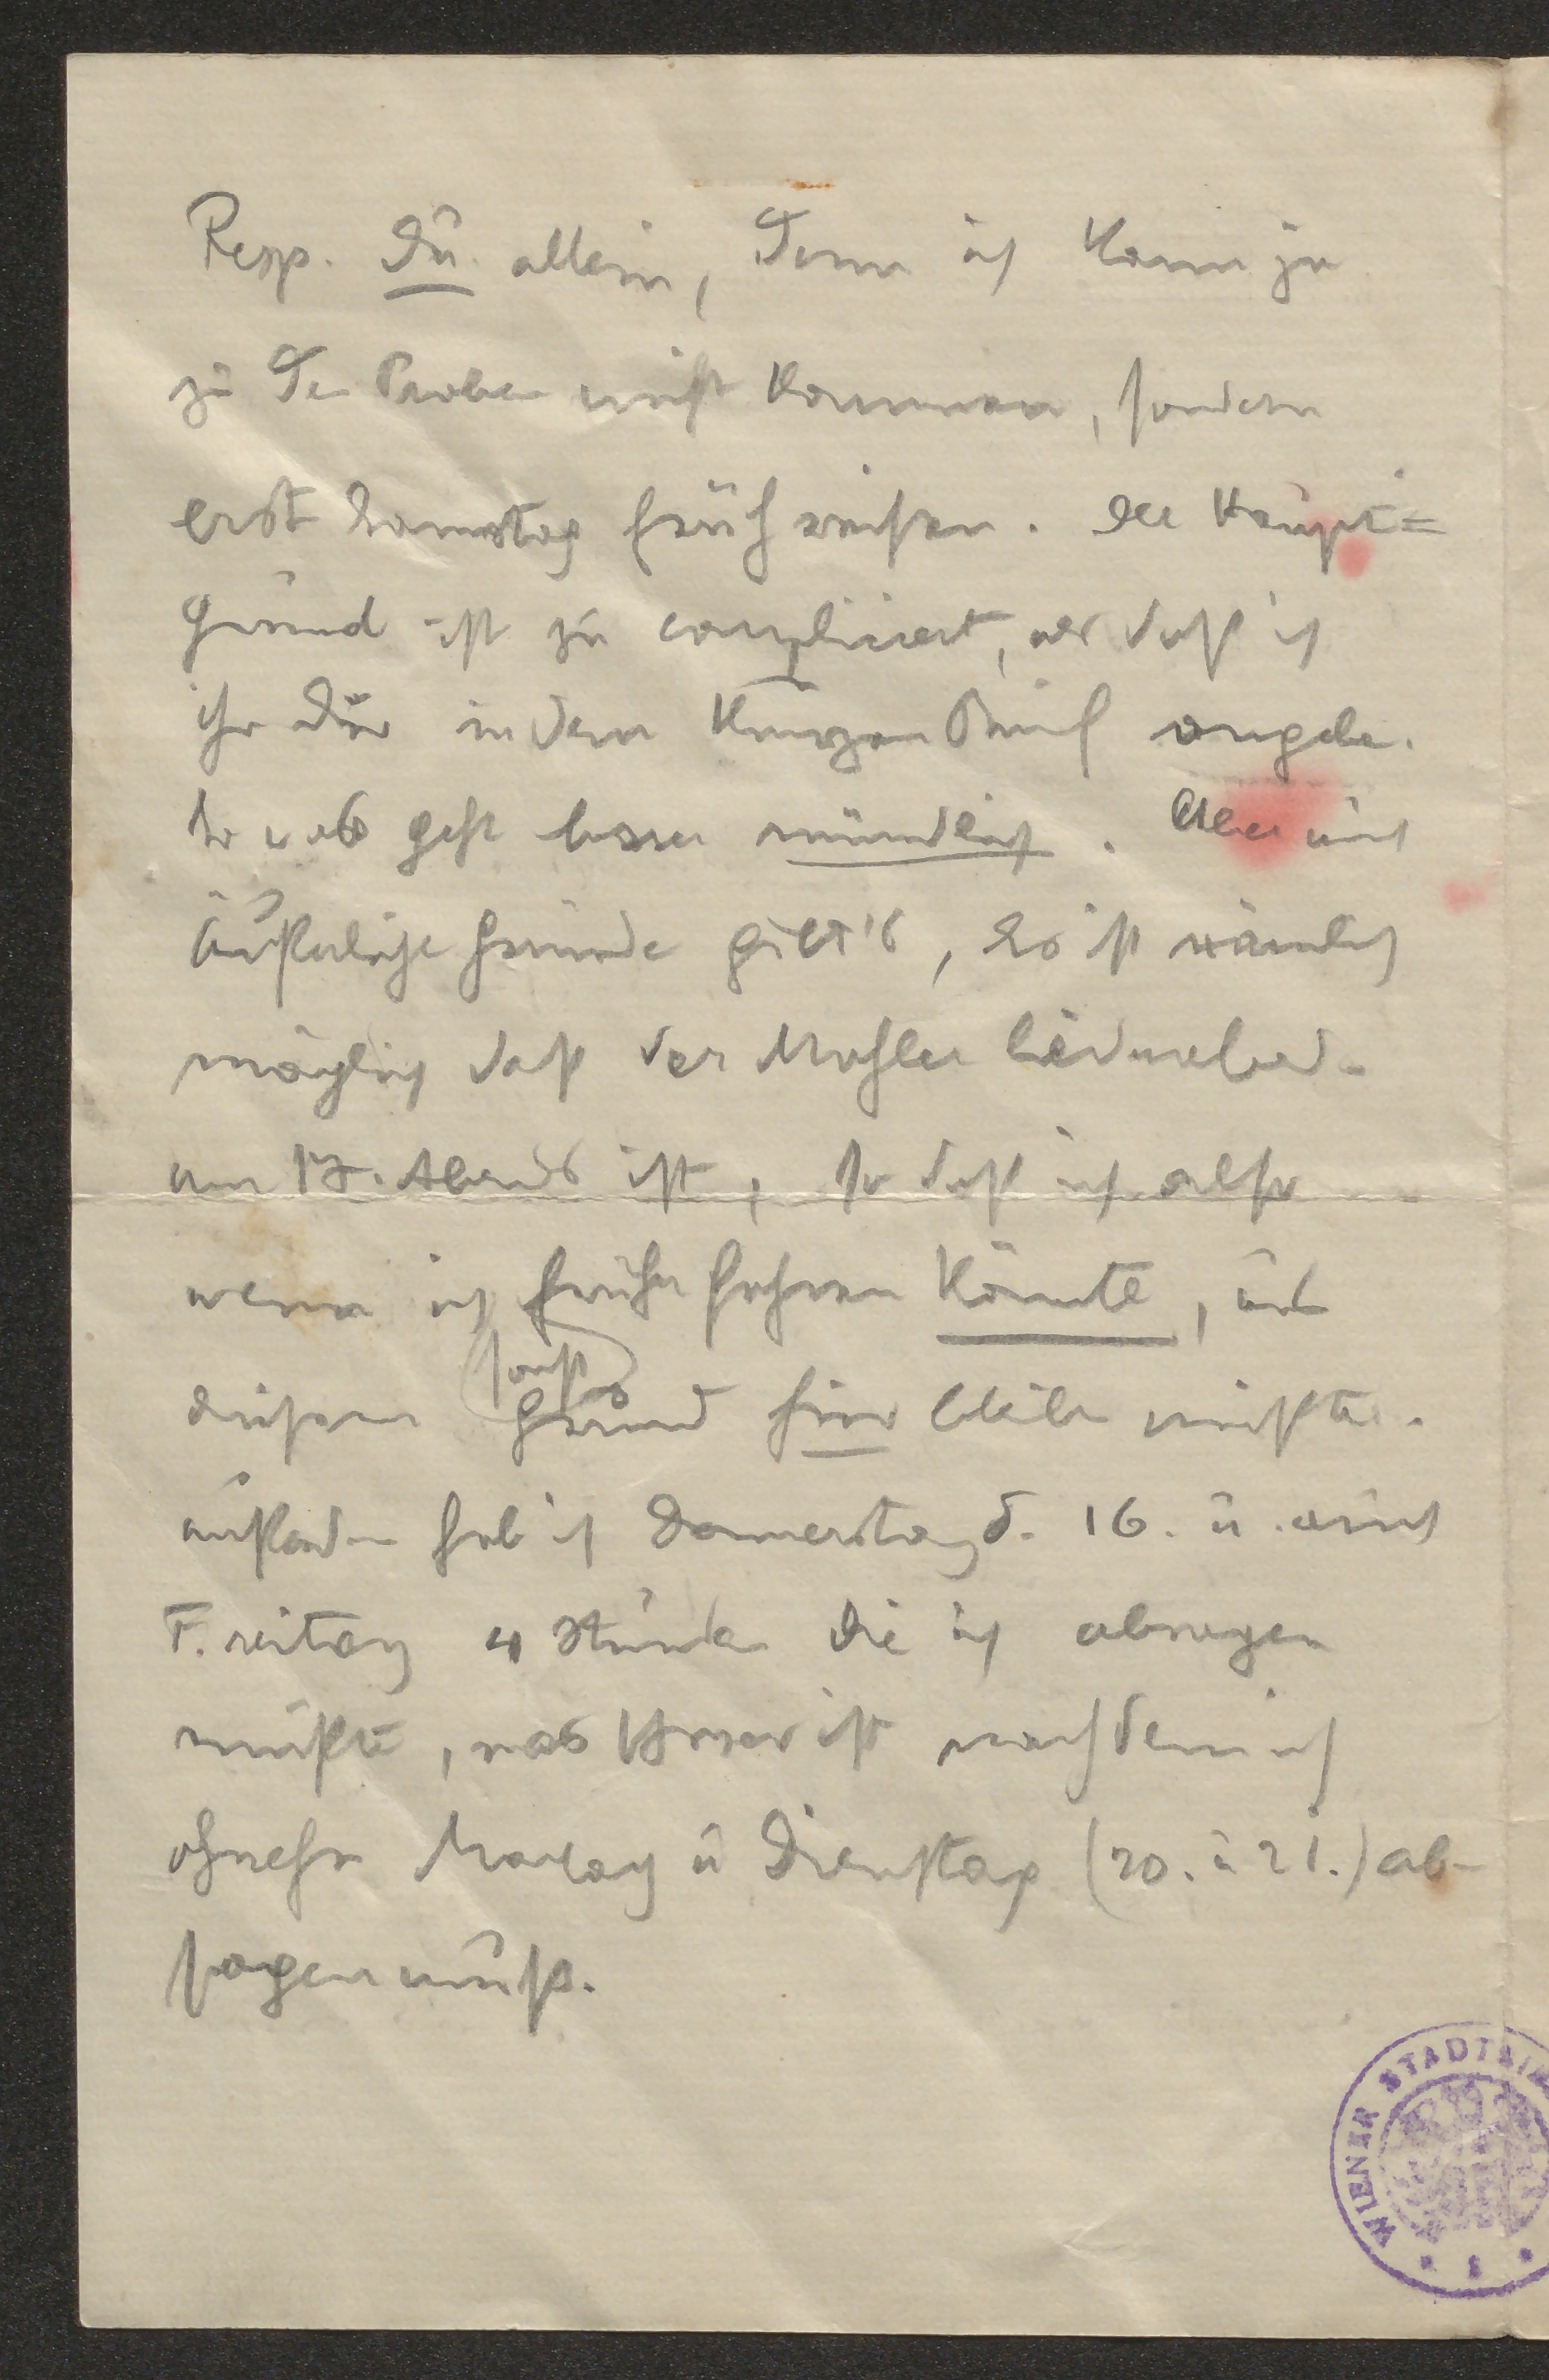 Resp. Du allein, denn ich kann ja
zu den Proben nicht kommen, sondern
erst Samstag früh reisen. Der Haupt=
grund ist zu compliciert, als daß ich
ihn Dir in dem kurzen Brief angebe.
So was geht besser mündlich. Aber auch
äußerliche Gründe gibt's, es ist nämlich
möglich daß der Mahler Liederabend
am 17. Abends ist, so daß ich also
wenn ich früher fahren könnte, aus
(sonst)
diesem Grund hier bleiben müßte.
außerdem hab ich Donnerstag d. 16. u. auch
Freitag 4 Stunden die ich absagen
müßte, was schwer ist nachdem ich
ohnehin Montag u Dienstag (20. u 21.) ab-
sagen muß.
WIENER STADTBI